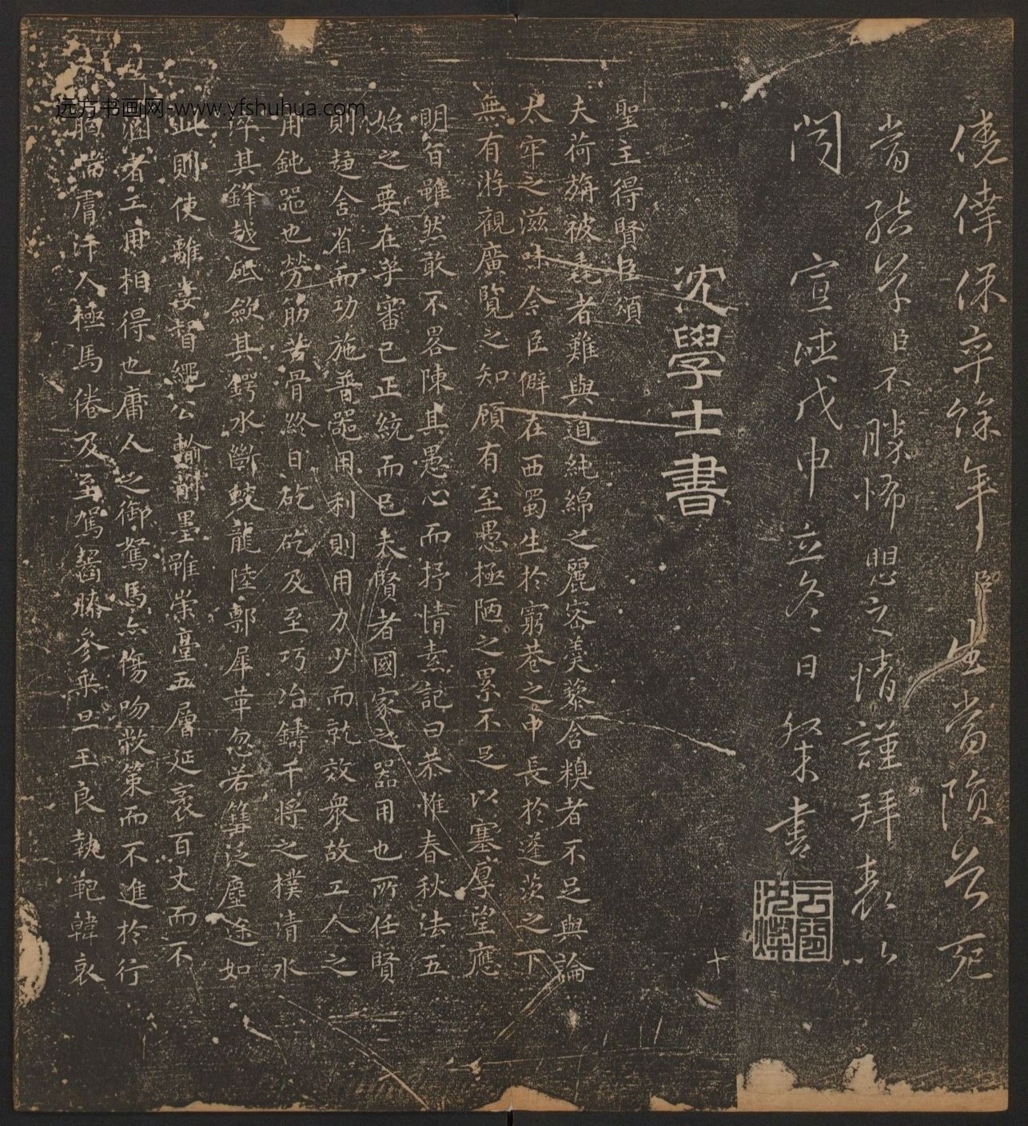 僥倖保卒餘年臣生當隕首死
當結草臣不勝怖懼之情謹拜表以
聞　宣德戊申立冬日粲書
云間沈粲
沈學士書
聖主得賢臣頌
夫荷旃被毳者難與道純綿之麗密羹藜唅糗者不足與論
太牢之滋味今臣僻在西蜀生於窮巷之中長於蓬茨之下
無有游觀廣覽之知顧有至愚極陋之累不足以塞厚望應
明旨雖然敢不畧陳其愚心而抒情素記曰恭惟春秋法五
始之要在乎審己正統而已夫賢者國家之器用也所任賢
則趨舍省而功施普器用利則用力少而就效衆故工人之
用鈍器也勞筋苦骨終日矻矻及至巧冶鑄干將之樸清水
淬其鋒越砥斂其鍔水斷蛟龍陸剸犀革忽若篲泛塵途如
此則使離婁督繩公輸削墨雖崇臺五層延袤百丈而不
溷者工用相得也庸人之御駑馬亦傷吻敝策而不進於行
胸喘膚汗人極馬倦及至駕齧膝參乘旦王良執靶韓哀
远方书画网-www.yfshuhua.com